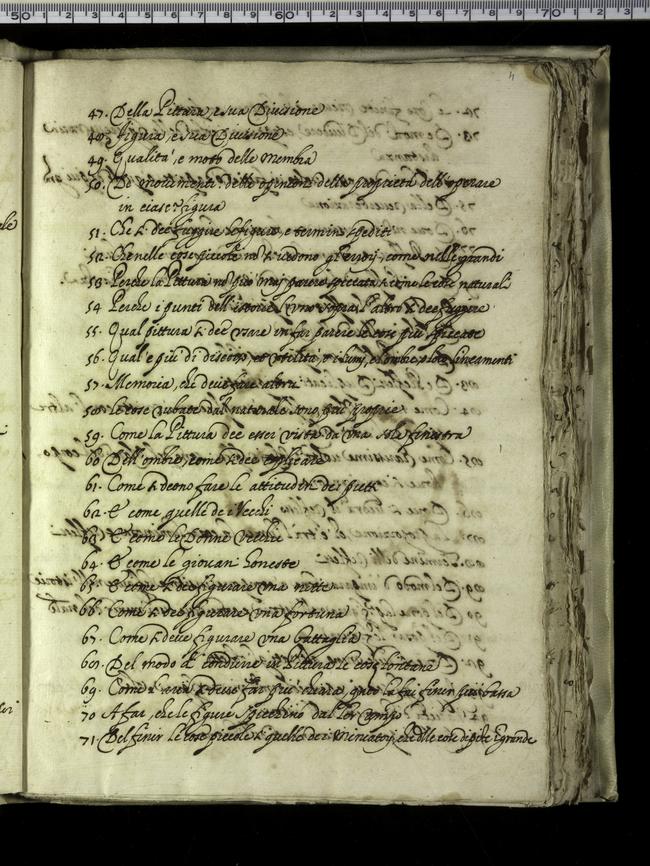 50 60 70
4
47. Della Pittura, e sua Divisione
48. figura, e sua Divisione
49. Qualità, e moto delle membra
50. De movimenti: delle opinioni, della proprietà dell'operare
in ciasc. figura
51. Che dee fuggire, e termini
52. Che nelle cose piccole non vedono gl'errori, come nelle grandi
53. Perche la Pittura non può mai parere spiccata come le cose naturali
54 Perche i punti dell'istorie l'uno sopra l'altro dee fuggire
55. Qual pittura dee usare in far parere le cose più spiccate
56. Qual è più di discorso, et utilità, i lumi, e l'ombre, o loro lineamenti
57. Memoria, che deve fare
58. le cose naturale sono, più proprie
59. Come la Pittura dee esser vista da una sola finestra
60 Dell'ombre, come dee
61. Come deono fare le attitudini dei putti
62. E come quelle de i Vecchi
63. E come le Donne Vecchie
64. E come le giovani honeste
65. E come dee figurare una notte
66. Come dee figurare una fortuna
67. Come deve figurare una battaglia
68. Del modo di condurre in Pittura le cose lontane
69. Come l'aria deve far più chiara, la fai finir più bassa
70 A far, che le figure spicchino dal lor campo
71. Del finir le cose piccole quelle de i